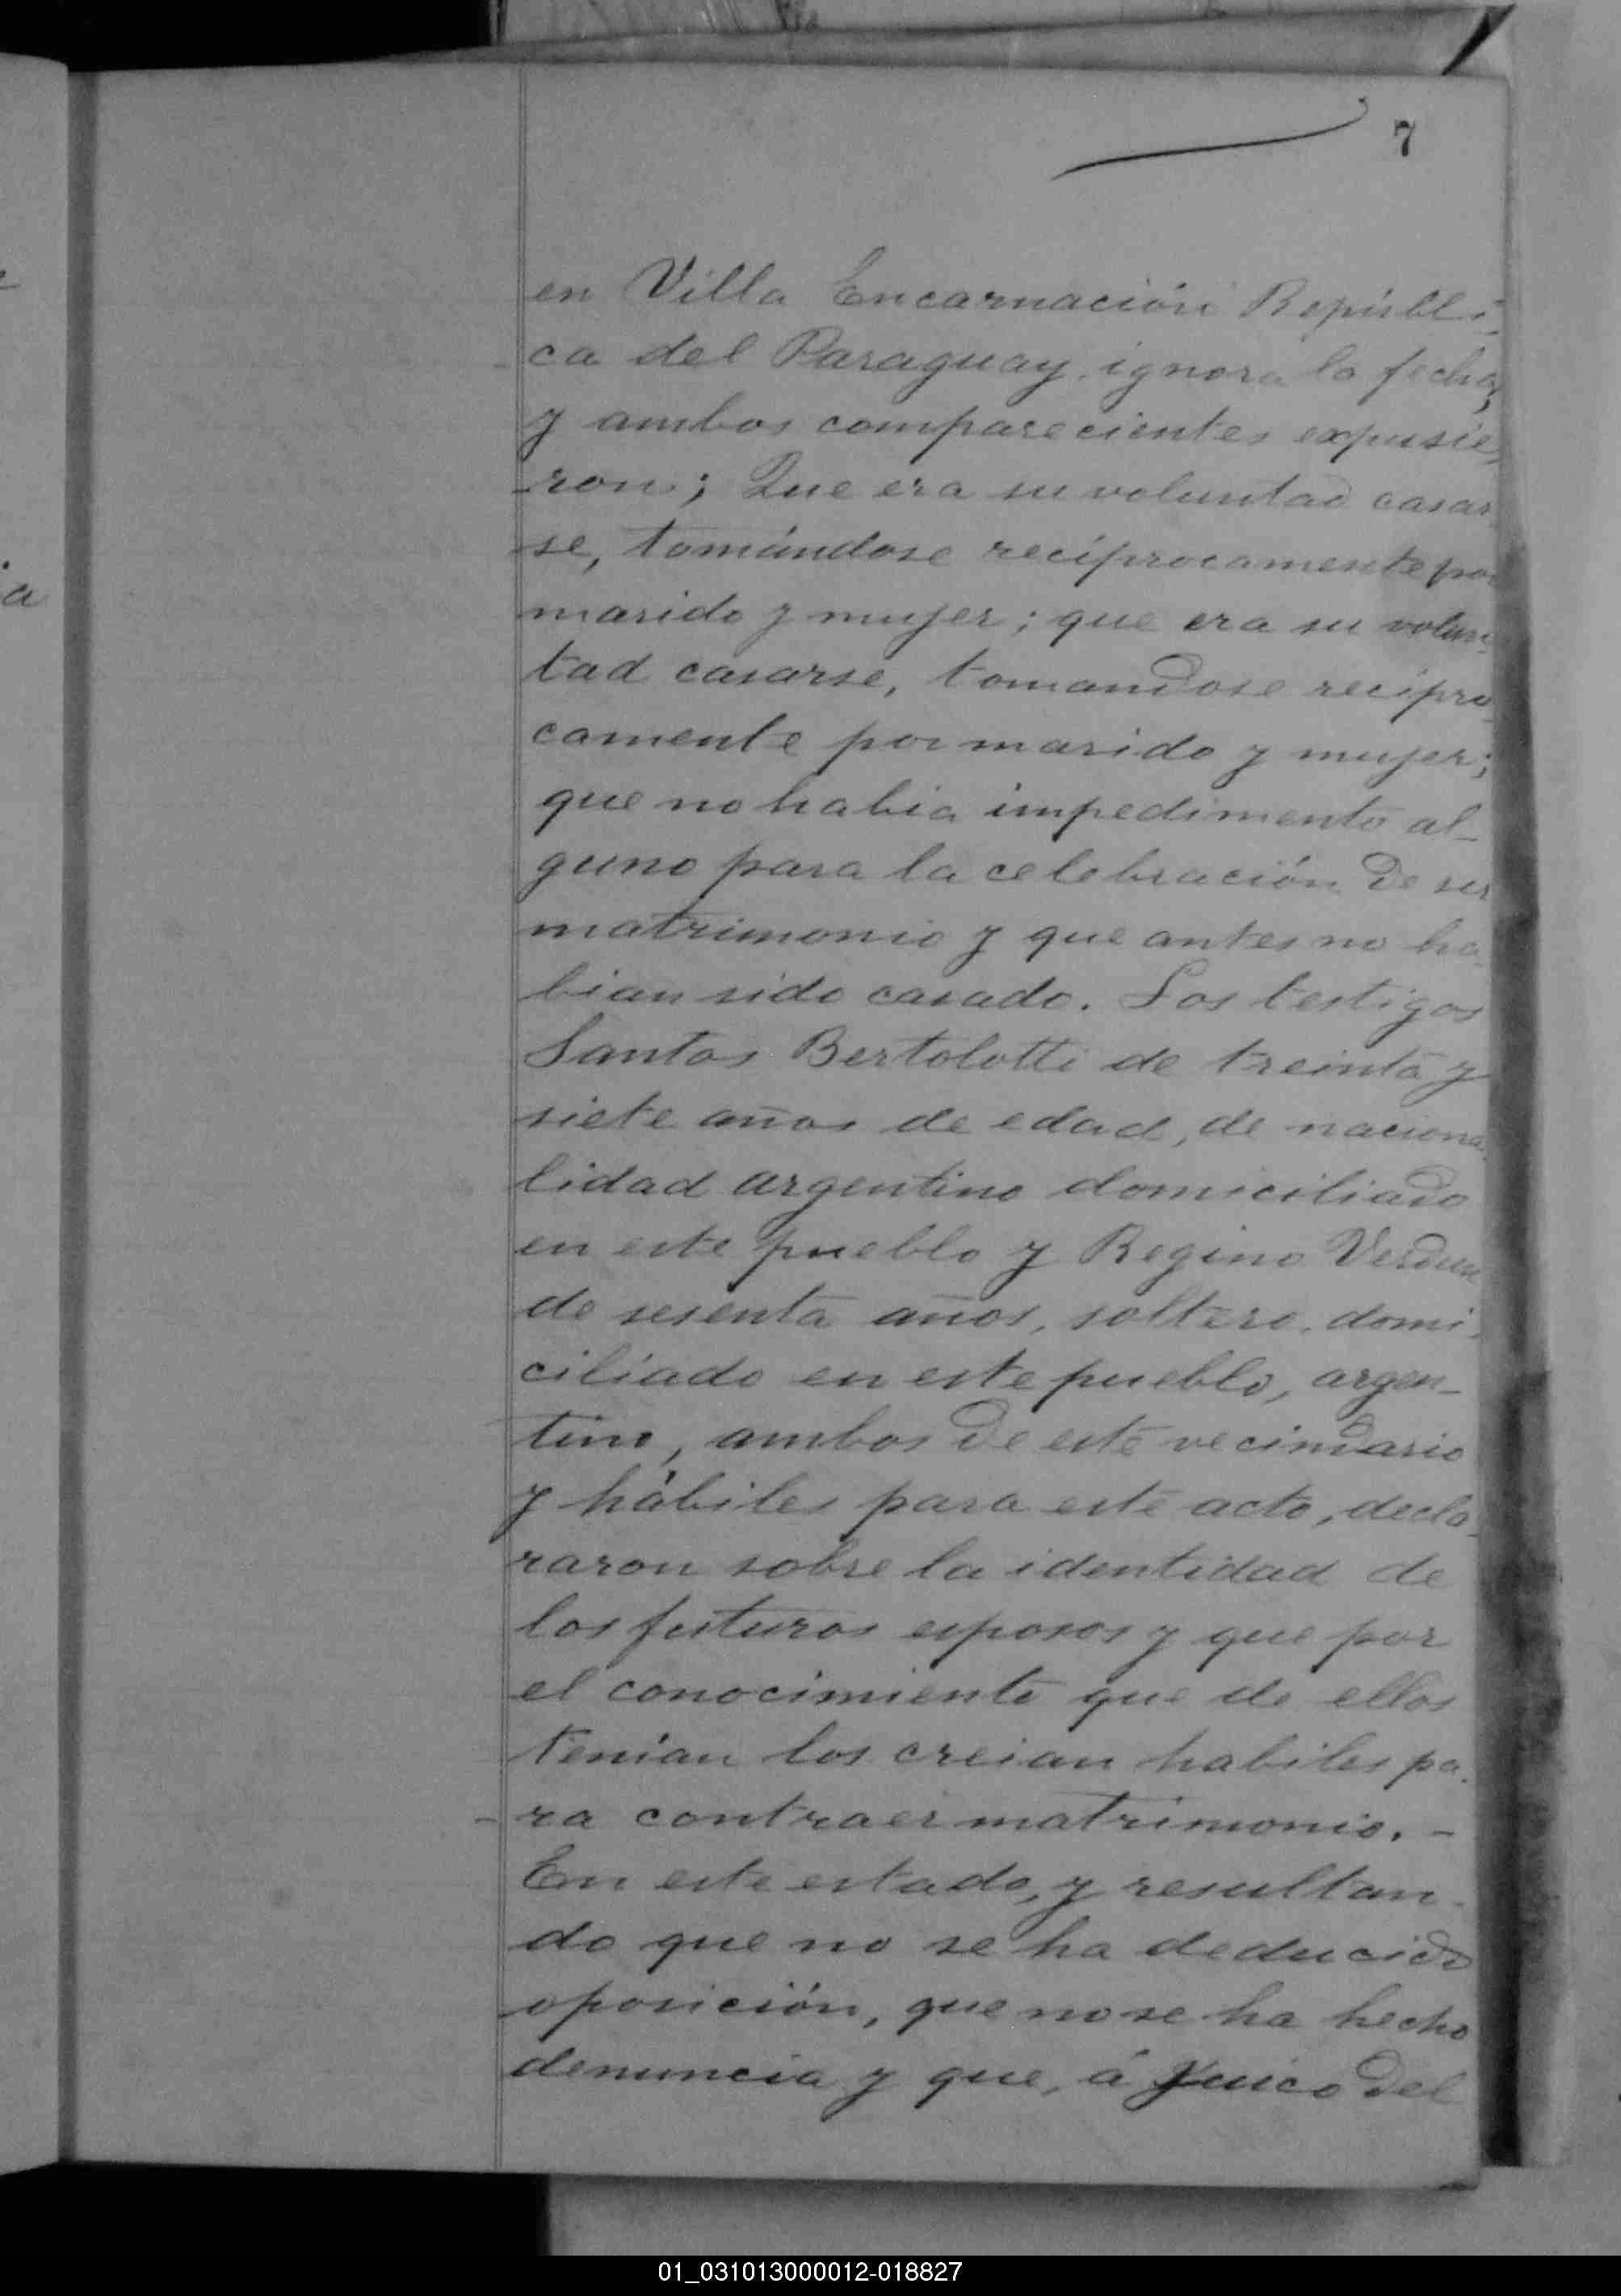 7
en Villa Encarnación Repúbli-
ca del Paraguay, ignora la fecha;
y ambos comparecientes expusie-
ron; Que era su voluntad casar
se, tomándose recíprocamente por
marido y mujer; que era su volun-
tad casarse, tomandose recípro-
camente por marido y mujer;
que no habia impedimento al-
guno para la celebración de su
matrimonio y que antes no ha-
bian sido casado. Los testigos
Santos Bertolotti de treinta y
siete años de edad, de naciona-
lidad argentino domiciliado
en este pueblo y Regino Verdun
de sesenta años, soltero, domi-
ciliado en este pueblo, argen-
tino, ambos de este vecindario
y hábiles para este acto, decla-
raron sobre la identidad de
los futuros esposos y que por
el conocimiento que de ellos
tenían los creian habiles pa-
ra contraer matrimonio. -
En este estado, y resultan-
do que no se ha deducido
oposición, que no se ha hecho
denuncia y que, á juico del
a
01_031013000012-018827